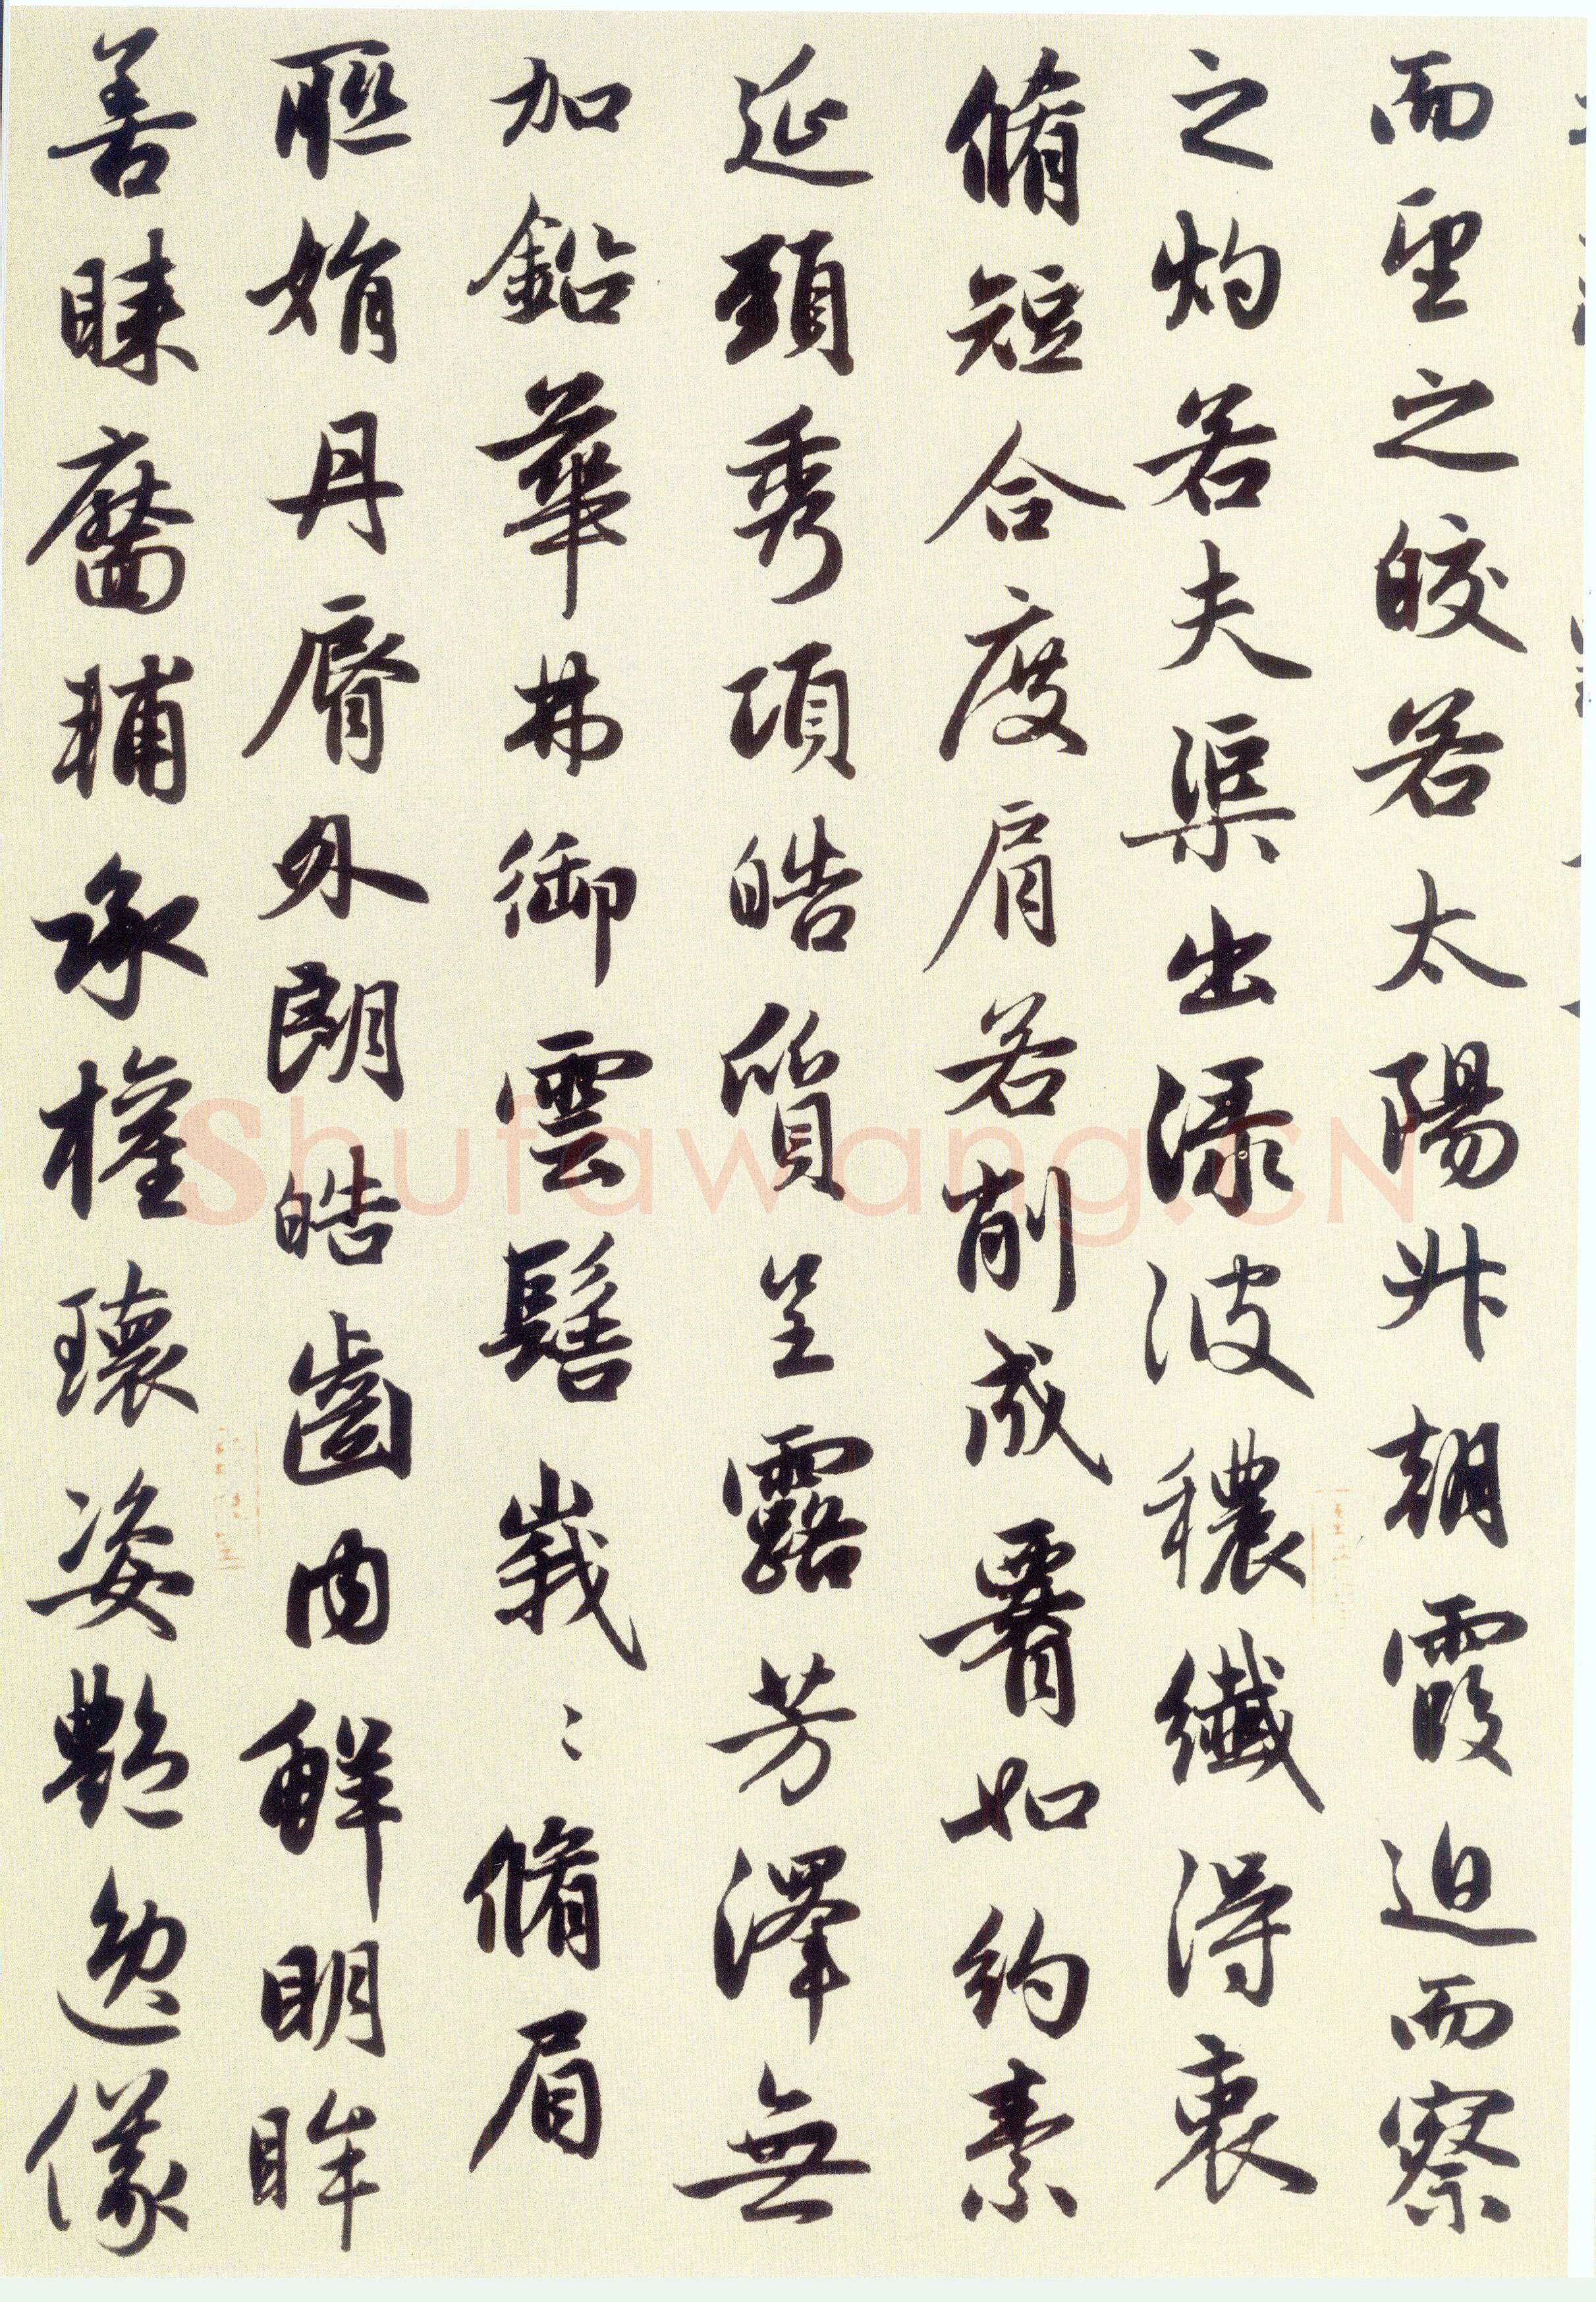 而望之皎若太陽升朝霞迫而察
之灼若夫渠出淥波穠纖得衷
脩短合度肩若削成腰如約素
延頸秀項皓質呈露芳澤無
加鉛華弗御雲髻峩〻脩眉
聯娟丹脣外朗皓齒内鮮明眸
善睞靨輔承權瓌姿艷逸儀
Shufawang.CN